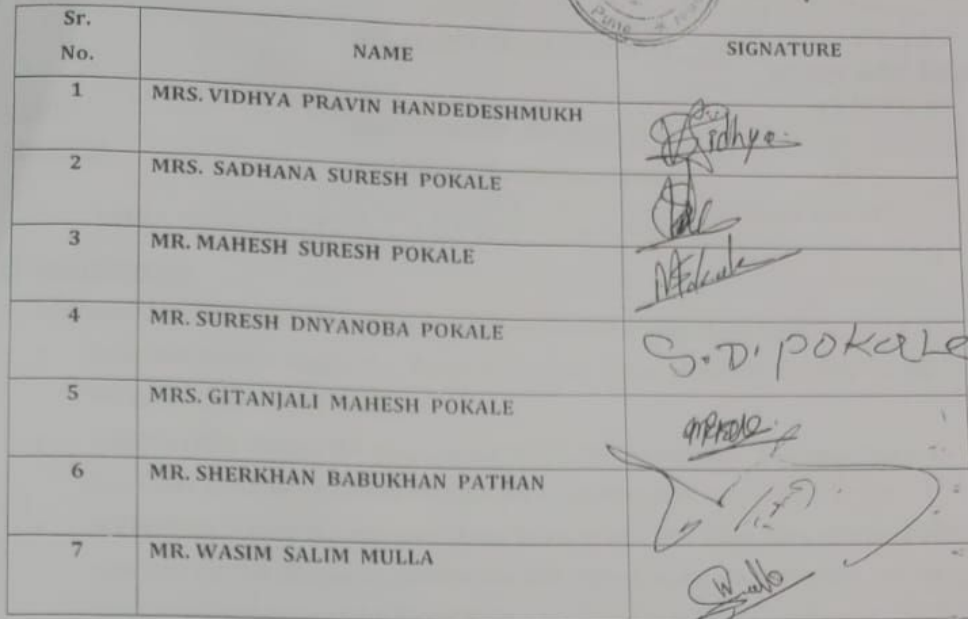 Pune
Sr.
No.
NAME
SIGNATURE
1
MRS. VIDHYA PRAVIN HANDEDESHMUKH
Vidhya
2
MRS. SADHANA SURESH POKALE
3
MR. MAHESH SURESH POKALE
4
MR. SURESH DNYANOBA POKALE
S.D. POKALE
5
MRS. GITANJALI MAHESH POKALE
6
MR. SHERKHAN BABUKHAN PATHAN
7
MR. WASIM SALIM MULLA